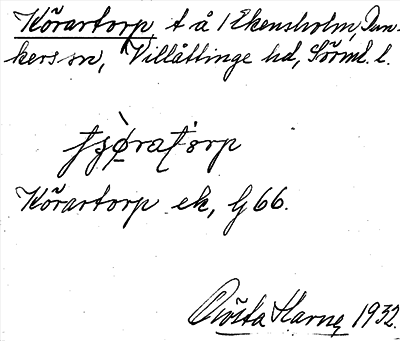 Körartorp, t å 1 Ekensholm, Dun-
kers sn, Villåttinge hd, Sörml. l.
Körartorp ek, G 66.
Gösta Harne 1932.